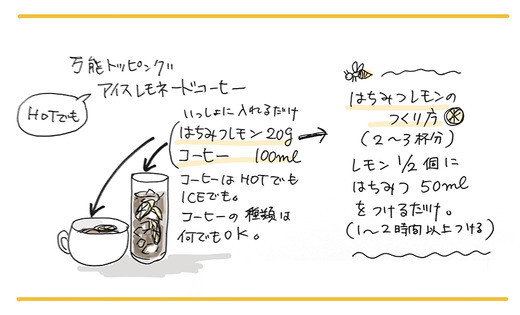 万能トッピング!!
アイスレモネードコーヒー
HOTでも
いっしょに入れるだけ
はちみつレモン 20g
コーヒー 100ml
コーヒーは HOTでも
ICEでも。
コーヒーの 種類は
何でもOK。
はちみつレモンの
つくり方
(2〜3杯分)
レモン 1/2 個に
はちみつ 50ml
をつけるだけ。
(1〜2時間以上つける)